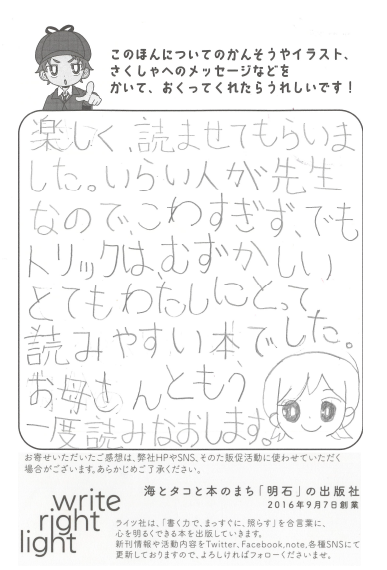 このほんについてのかんそうやイラスト、
さくしゃへのメッセージなどを
かいて、おくってくれたらうれしいです！
楽しく、読ませてもらいま
した。いらい人が先生
なので、こわすぎず、でも
トリックは、むずかしい
とてもわたしにとって
読みやすい本でした。
お母さんともう
一度読みなおします。
お寄せいただいたご感想は、弊社HPやSNS、そのた販促活動に使わせていただく
場合がございます。あらかじめご了承ください。
海とタコと本のまち「明石」の出版社
2016年9月7日創業
write
right
light
ライツ社は、「書く力で、まっすぐに、照らす」を合言葉に、
心を明るくできる本を出版していきます。
新刊情報や活動内容をTwitter、Facebook、note、各種SNSにて
更新しておりますので、よろしければフォローくださいませ。